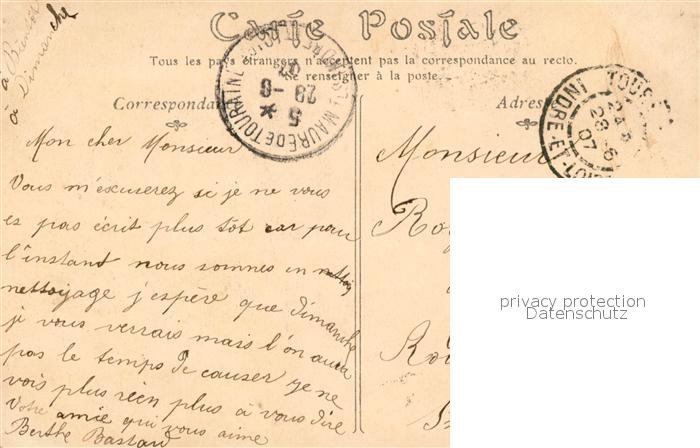 Carte Postale
Tous les pays étrangers n'acceptent pas la correspondance au recto.
Se renseigner à la poste.
à Bientôt
à Dimanche
Correspondan
Mon cher Monsieur
Vous m'excuserez si je ne vous
es pas écrit plus tôt car pour
l'instant nous sommes en
nettoyage j'espère que dimanche
je vous verrais mais l'on aura
pas le temps de causer je ne
vois plus rien plus à vous dire
Votre amie qui vous aime
Berthe Bastard
STE MAURE DE TOURAINE
5
28 - 6
07
Adres
Monsieur
Ro
Ro
TOURS
INDRE-ET-LOIRE
28 - 6
07
privacy protection
Datenschutz